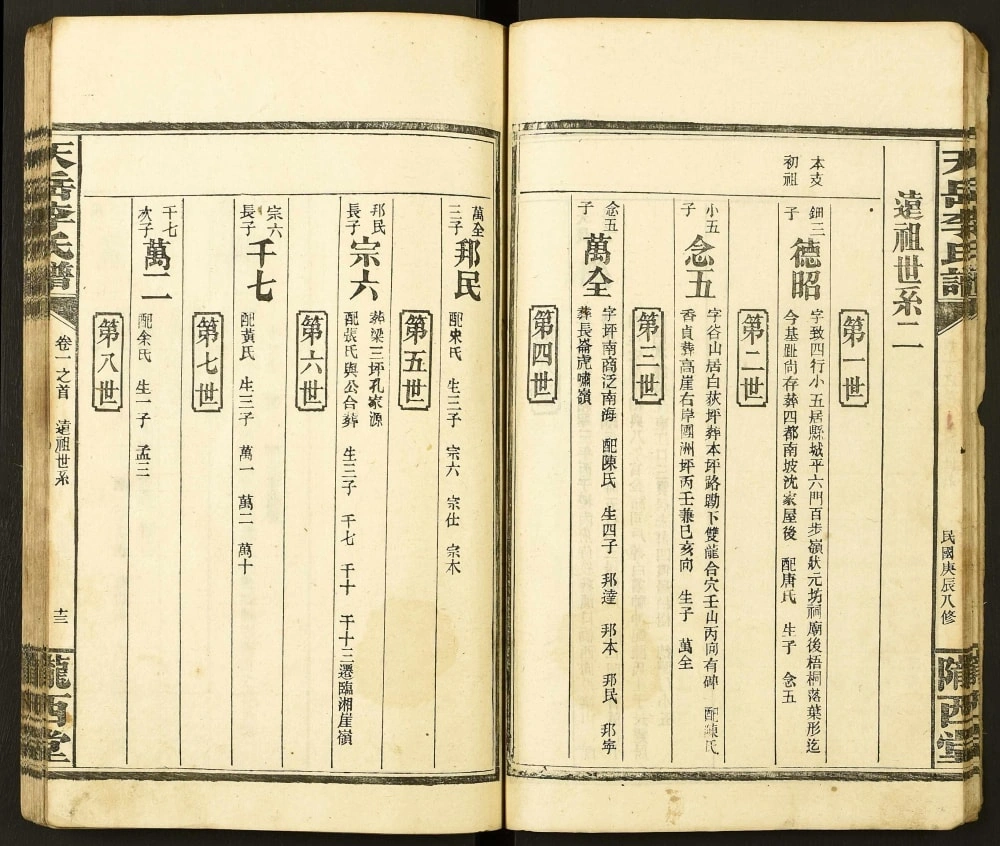 天岳李氏譜
民國庚辰八修
隴西堂
遠祖世系二
第一世
本支
初祖
鈿三
子
德昭
字致四行小五居縣城平六門百步嶺狀元坊祠廟後梧桐落葉形迄
今基趾尚存葬四都南坡沈家屋後 配唐氏 生子 念五
第二世
小五
子
念五
字谷山居白荻坪葬本坪路勘下雙龍合穴壬山丙向有碑 配陳氏
香貞葬高崖右岸團洲坪丙壬兼巳亥向 生子 萬全
第三世
念五
子
萬全
字坪南商泛南海 配陳氏 生四子 邦達 邦本 邦民 邦寧
葬長崙虎嘯嶺
第四世
萬全
三子
邦民
配宋氏 生三子 宗六 宗仕 宗木
第五世
邦民
長子
宗六
葬梁三坪孔家源
配張氏與公合葬 生三子 千七 千十 千十三遷臨湘崖嶺
第六世
宗六
長子
千七
配黃氏 生三子 萬一 萬二 萬十
第七世
千七
次子
萬二
配余氏 生一子 孟三
第八世
天岳李氏譜
卷一之首 遠祖世系
十三
隴西堂